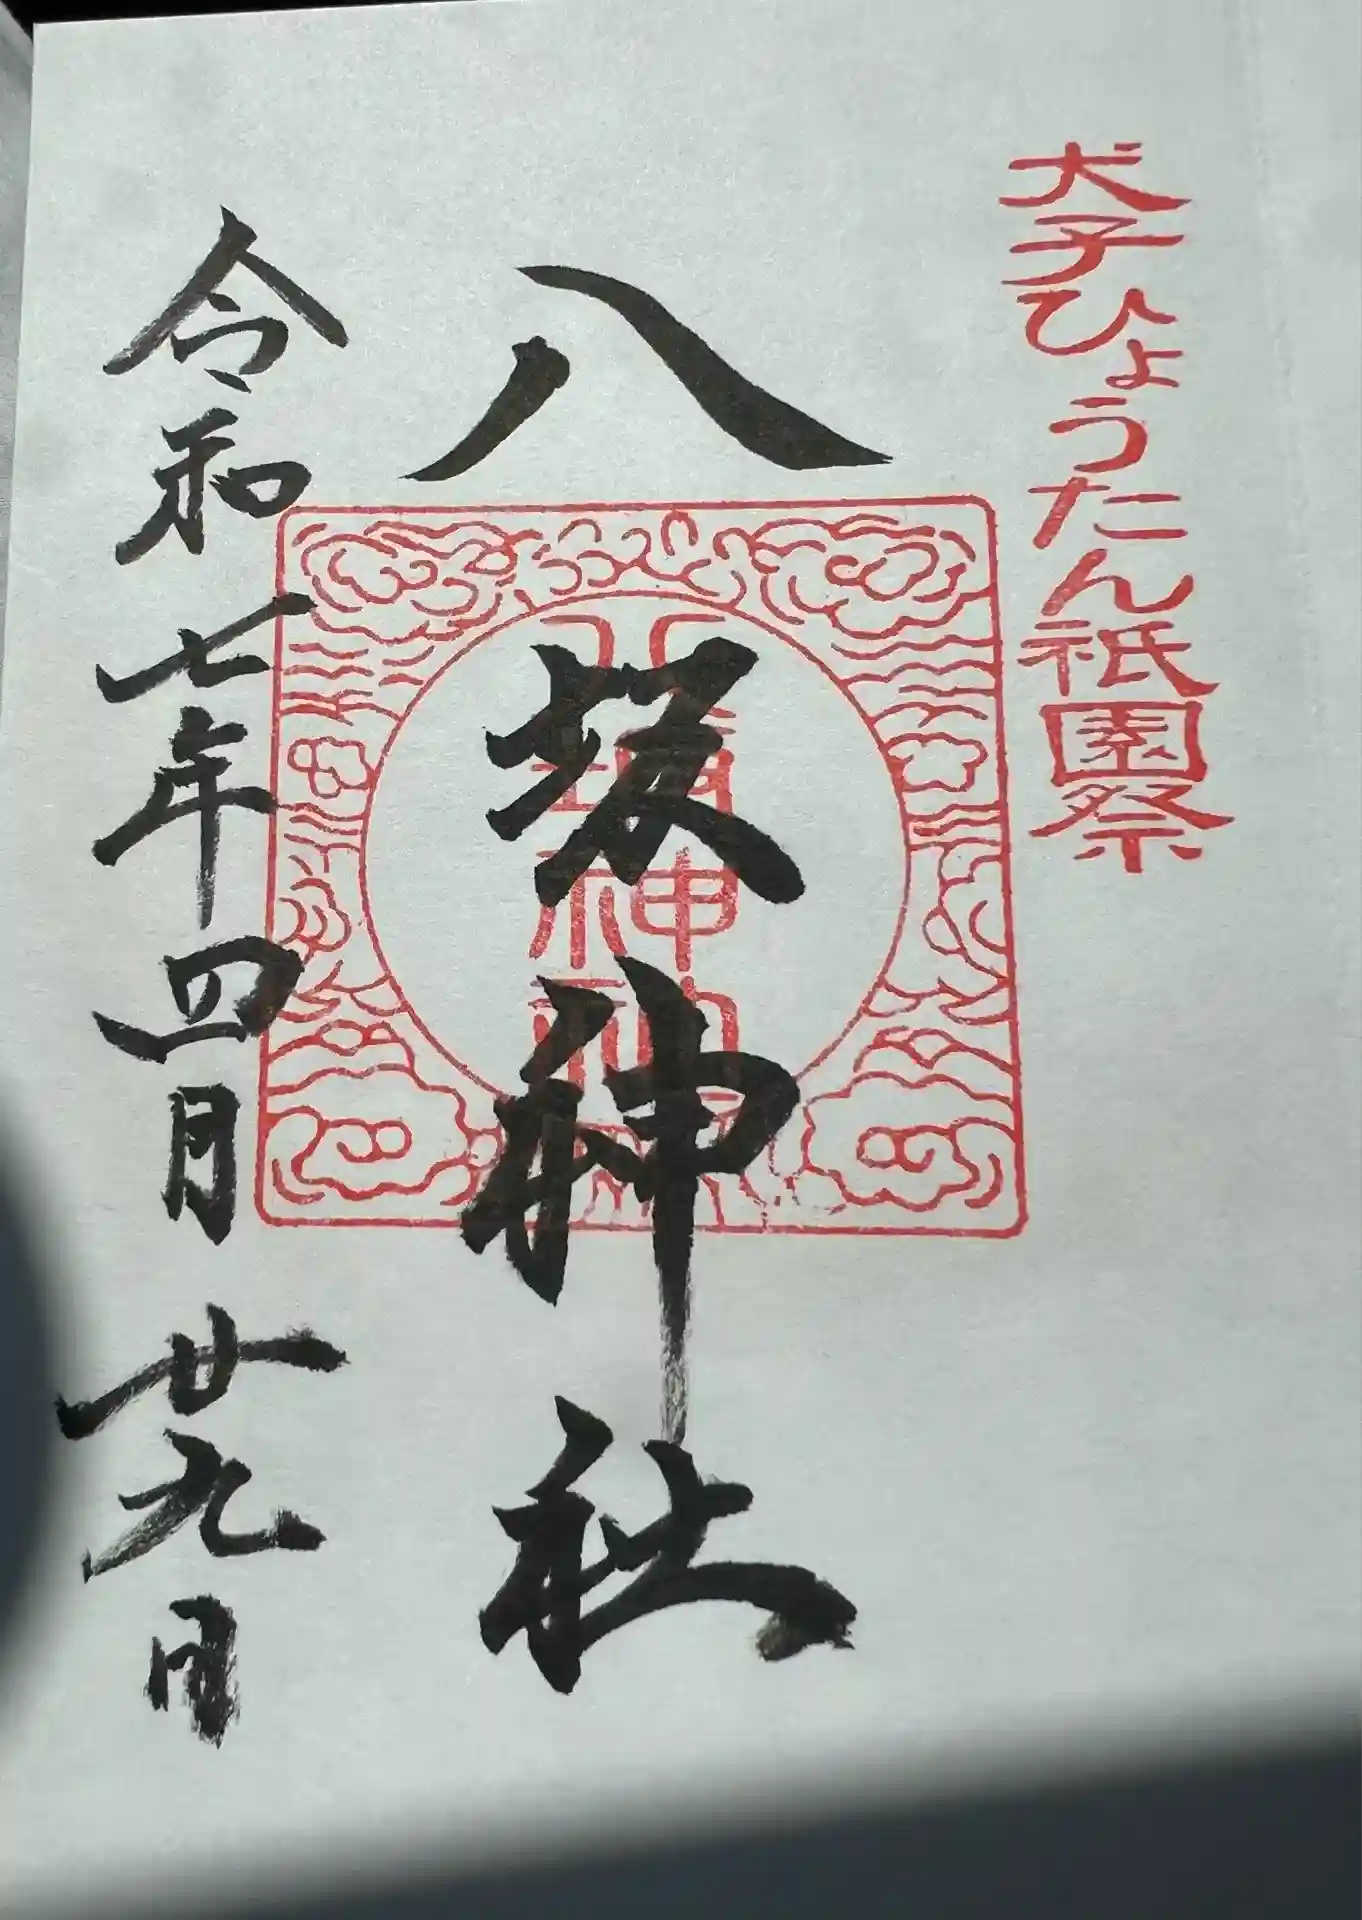 犬子ひょうたん祇園祭
八坂神社
八坂神社
令和七年四月廿九日